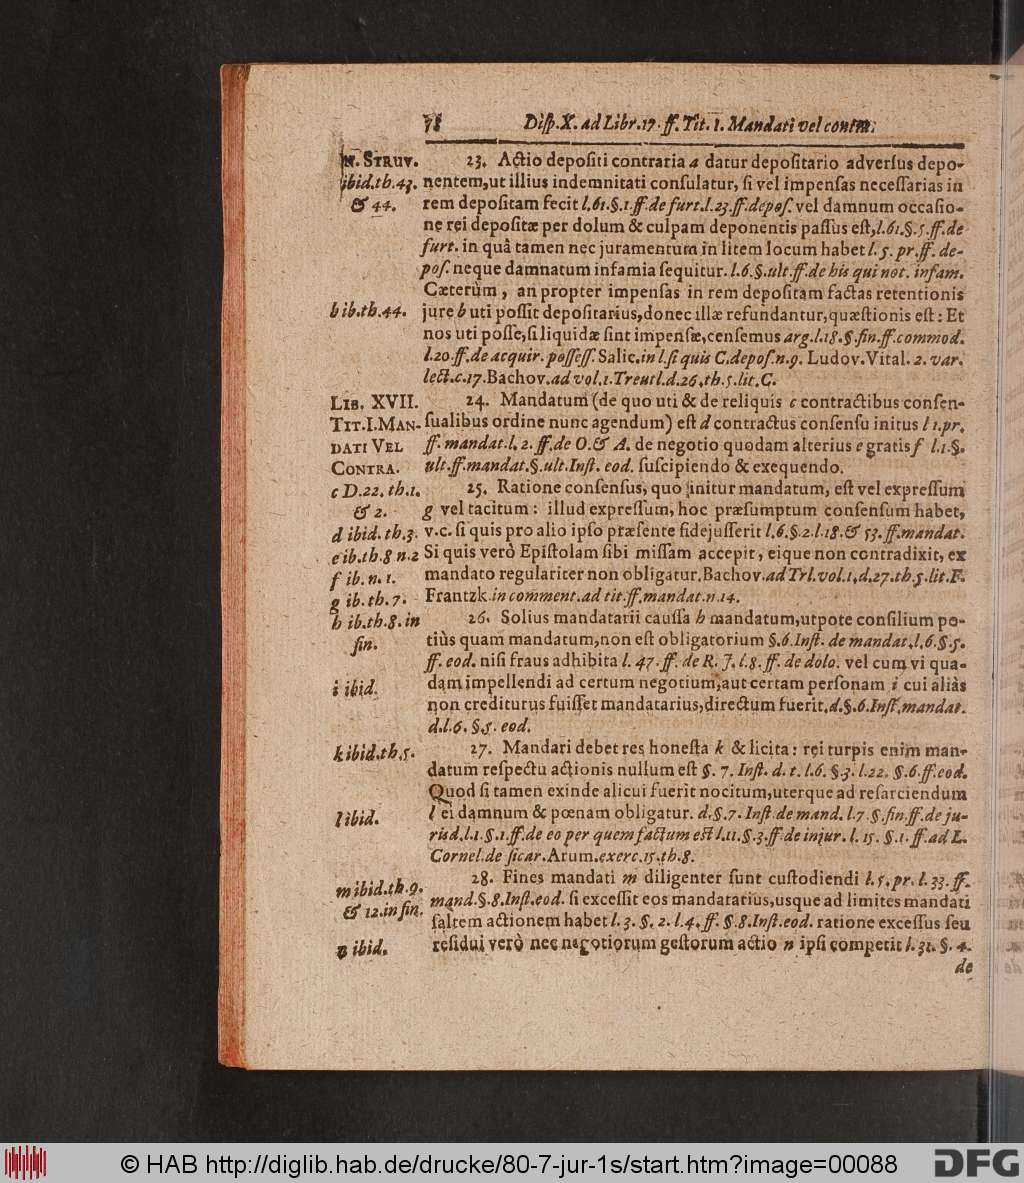 78 Diſp. X. ad Libr. 17. ff. Tit. I. Mandati vel contra.
N. STRUV.
ibid. th. 43.
& 44.
23. Actio depoſiti contraria a datur depoſitario adverſus depo-
nentem, ut illius indemnitati conſulatur, ſi vel impenſas neceſſarias in
rem depoſitam fecit l. 61. §. 1. ff. de furt. l. 23. ff. depoſ. vel damnum occaſio-
ne rei depoſitæ per dolum & culpam deponentis paſſus eſt, l. 61. §. 5. ff. de
furt. in quâ tamen nec juramentum in litem locum habet l. 5. pr. ff. de-
poſ. neque damnatum infamia ſequitur. l. 6. §. ult. ff. de his qui not. infam.
Cæterùm, an propter impenſas in rem depoſitam factas retentionis
b ib. th. 44.
jure b uti poſſit depoſitarius, donec illæ refundantur, quæſtionis eſt: Et
nos uti poſſe, ſi liquidæ ſint impenſæ, cenſemus arg. l. 18. §. fin. ff. commod.
l. 20. ff. de acquir. poſſeſſ. Salic. in l. ſi quis C. depoſ. n. 9. Ludov. Vital. 2. var.
lect. c. 17. Bachov. ad vol. 1. Treutl. d. 26. th. 5. lit. C.
LIB. XVII.
TIT. I. MAN-
DATI VEL
CONTRA.
24. Mandatum (de quo uti & de reliquis c contractibus conſen-
ſualibus ordine nunc agendum) eſt d contractus conſenſu initus l 1. pr.
ff. mandat. l. 2. ff. de O. & A. de negotio quodam alterius e gratis f l. 1. §.
ult. ff. mandat. §. ult. Inſt. eod. ſuſcipiendo & exequendo.
c D. 22. th. 1.
& 2.
d ibid. th. 3.
e ib. th. 8 n. 2
f ib. n. 1.
g ib. th. 7.
25. Ratione conſenſus, quo initur mandatum, eſt vel expreſſum
g vel tacitum: illud expreſſum, hoc præſumptum conſenſum habet,
v. c. ſi quis pro alio ipſo præſente fidejuſſerit l. 6. §. 2. l. 18. & 53. ff. mandat.
Si quis verò Epiſtolam ſibi miſſam accepit, eique non contradixit, ex
mandato regulariter non obligatur. Bachov. ad Trl. vol. 1. d. 27. th. 5. lit. F.
Frantzk. in comment. ad tit. ff. mandat. n. 14.
h ib. th. 8. in
fin.
26. Solius mandatarii cauſſa h mandatum, utpote conſilium po-
tiùs quam mandatum, non eſt obligatorium §. 6. Inſt. de mandat. l. 6. §. 5.
ff. eod. niſi fraus adhibita l. 47. ff. de R. J. l. 8. ff. de dolo. vel cum vi qua-
i ibid.
dam impellendi ad certum negotium, aut certam perſonam i cui aliàs
non crediturus fuiſſet mandatarius, directum fuerit, d. §. 6. Inſt. mandat.
d. l. 6. §. 5. eod.
k ibid. th. 5.
27. Mandari debet res honeſta k & licita: rei turpis enim man-
datum reſpectu actionis nullum eſt §. 7. Inſt. d. t. l. 6. §. 3. l. 22. §. 6. ff. eod.
Quod ſi tamen exinde alicui fuerit nocitum, uterque ad reſarciendum
l ibid.
l ei damnum & pœnam obligatur. d. §. 7. Inſt. de mand. l. 7. §. fin. ff. de ju-
risd. l. 1. §. 1. ff. de eo per quem factum eſt l. 11. §. 3. ff. de injur. l. 15. §. 1. ff. ad L.
Cornel. de ſicar. Arum. exerc. 15. th. 8.
m ibid. th. 9.
& 12. in fin.
28. Fines mandati m diligenter ſunt cuſtodiendi l. 5. pr. l. 33. ff.
mand. §. 8. Inſt. eod. ſi exceſſit eos mandatarius, usque ad limites mandati
ſaltem actionem habet l. 3. §. 2. l. 4. ff. §. 8. Inſt. eod. ratione exceſſus ſeu
n ibid.
reſidui verò nec negotiorum geſtorum actio n ipſi competit l. 31. §. 4.
de
© HAB http://diglib.hab.de/drucke/80-7-jur-1s/start.htm?image=00088
DFG